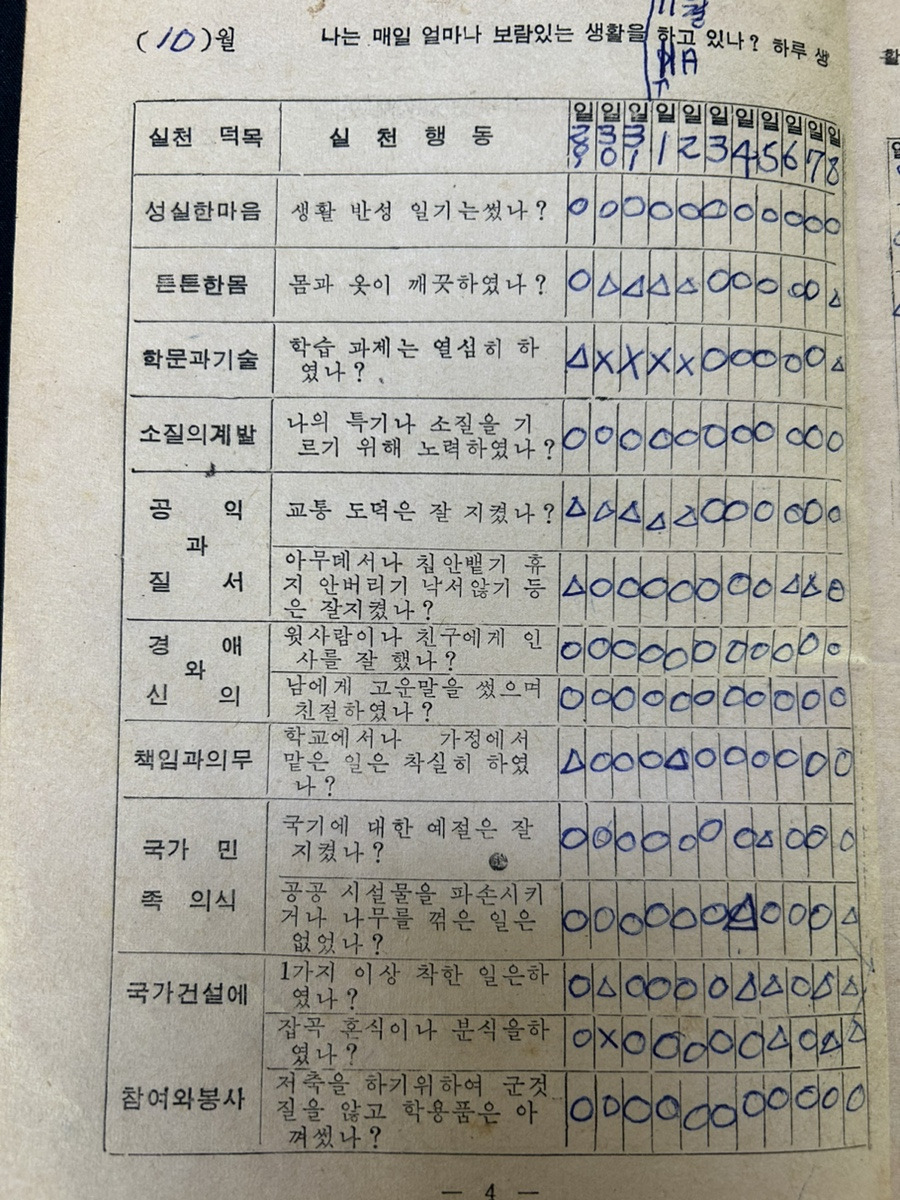 11월
(10)월 나는 매일 얼마나 보람있는 생활을 하고 있나? 하루 생
실천 덕목 실 천 행 동 일 일 일 일 일 일 일 일 일 일 일
29 30 31 1 2 3 4 5 6 7 8
성실한마음 생활 반성 일기는썼나? ○ ○ ○ ○ ○ ○ ○ ○ ○ ○ ○
튼튼한몸 몸과 옷이 깨끗하였나? ○ △ △ △ △ ○ ○ ○ ○ ○ △
학문과기술 학습 과제는 열심히 하
였나? △ X X X X ○ ○ ○ ○ ○ △
소질의계발 나의 특기나 소질을 기
르기 위해 노력하였나? ○ ○ ○ ○ ○ ○ ○ ○ ○ ○ ○
공 익
과
질 서
교통 도덕은 잘 지켰나? △ △ △ △ △ ○ ○ ○ ○ ○ ○
아무데서나 침안뱉기 휴
지 안버리기 낙서않기 등 △ ○ ○ ○ ○ ○ ○ ○ △ △ ○
은 잘지켰나?
경 애
와
신 의
윗사람이나 친구에게 인
사를 잘 했나? ○ ○ ○ ○ ○ ○ ○ ○ ○ ○ ○
남에게 고운말을 썼으며
친절하였나? ○ ○ ○ ○ ○ ○ ○ ○ ○ ○ ○
책임과의무 학교에서나 가정에서
맡은 일은 착실히 하였 △ ○ ○ ○ △ ○ ○ ○ ○ ○ ○
나?
국가 민
족 의식
국기에 대한 예절은 잘
지켰나? ○ ○ ○ ○ ○ ○ ○ △ ○ ○ ○
공공 시설물을 파손시키
거나 나무를 꺾은 일은 ○ ○ ○ ○ ○ ○ △ ○ ○ ○ △
없었나?
국가건설에
참여와봉사
1가지 이상 착한 일은하
였나? ○ △ ○ ○ ○ ○ △ △ ○ △ △
잡곡 혼식이나 분식을하
였나? ○ X ○ ○ ○ ○ ○ △ ○ △ △
저축을 하기위하여 군것
질을 않고 학용품은 아 ○ ○ ○ ○ ○ ○ ○ ○ ○ ○ ○
껴썼나?
— 4 —